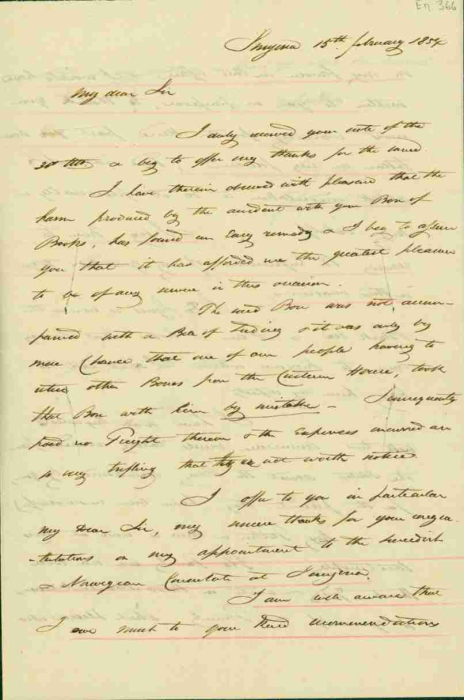 En. 366
Smyrna 15th february 1854
My dear Sir
I duly received your note of the
30 Ulto & beg to offer my thanks for the same
I have therein observed with pleasure that the
harm produced by the accident with your Box of
Books, has found an Easy remedy & I beg to assure
you that it has afforded me the greatest pleasure
to be of any service in this occasion.
The said Box was not accom-
panied with a Bill of Lading & it was only by
mere Chance that one of our people having to
other Boxes from the Custom House, took
that Box with him by mistake. I consequently
paid no Freight thereon & the Expenses incurred are
so very trifling that they are not worth notice
I offer to you in particular
my Dear Sir, my sincere thanks for your congra-
-tulations on my appointment to the Swedish
& Norwegian Consulate at Smyrna.
I am well aware that
I owe much to your kind recommendations